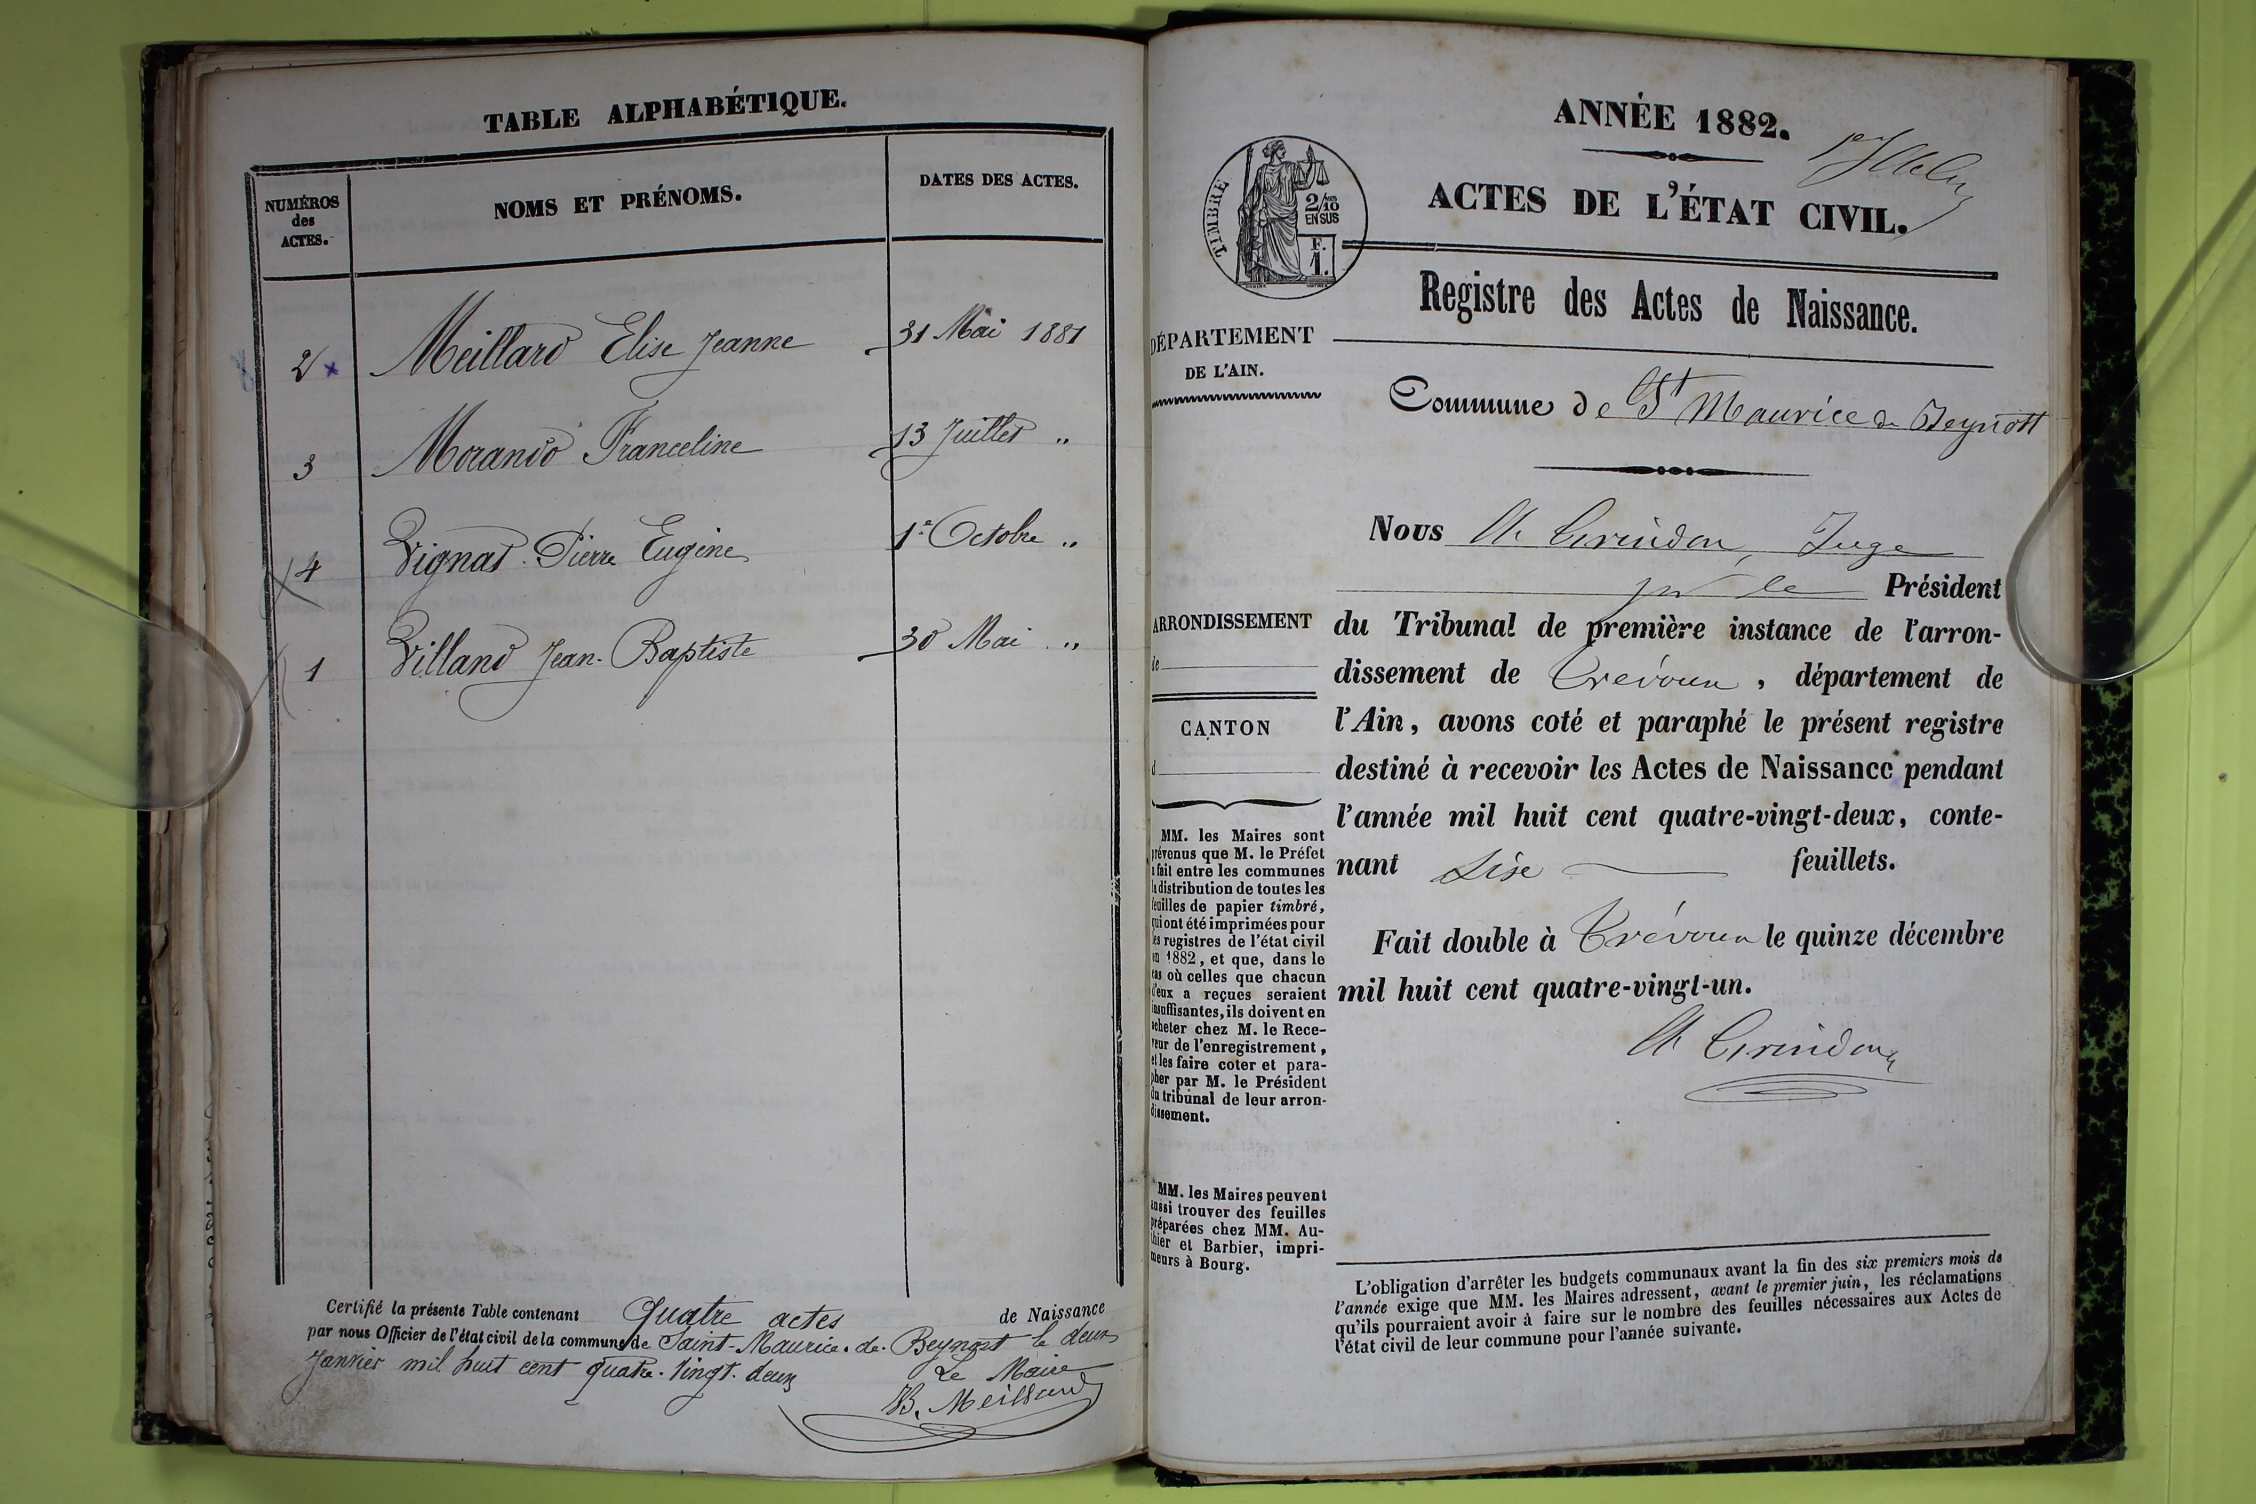 TABLE ALPHABÉTIQUE.
NUMÉROS
des
ACTES.
NOMS ET PRÉNOMS.
DATES DES ACTES.
2 Meillard Elise Jeanne 31 Mai 1881
3 Morand Franceline 13 Juillet "
4 Vignat Pierre Eugène 1er Octobre "
1 Villand Jean-Baptiste 30 Mai "
Certifié la présente Table contenant quatre actes de Naissance
par nous Officier de l'état civil de la commune de Saint-Maurice-de-Beynost le deux
Janvier mil huit cent quatre-vingt-deux
Le Maire
B. Meillard
ANNÉE 1882.
ACTES DE L'ÉTAT CIVIL.
TIMBRE
2/10
EN SUS
F.
1.
Registre des Actes de Naissance.
DÉPARTEMENT
DE L'AIN.
Commune de St Maurice de Beynost
Nous Ch Grindon, Juge
pr le Président
ARRONDISSEMENT
de
du Tribunal de première instance de l'arron-
dissement de Trévoux, département de
CANTON
d
l'Ain, avons coté et paraphé le présent registre
destiné à recevoir les Actes de Naissance pendant
l'année mil huit cent quatre-vingt-deux, conte-
nant Six feuillets.
Fait double à Trévoux le quinze décembre
mil huit cent quatre-vingt-un.
Ch Grindon
MM. les Maires sont
prévenus que M. le Préfet
a fait entre les communes
la distribution de toutes les
feuilles de papier timbré,
qui ont été imprimées pour
les registres de l'état civil
en 1882, et que, dans le
cas où celles que chacun
d'eux a reçues seraient
insuffisantes, ils doivent en
acheter chez M. le Rece-
veur de l'enregistrement,
et les faire coter et para-
pher par M. le Président
du tribunal de leur arron-
dissement.
MM. les Maires peuvent
aussi trouver des feuilles
préparées chez MM. Au-
thier et Barbier, impri-
meurs à Bourg.
L'obligation d'arrêter les budgets communaux avant la fin des six premiers mois de
l'année exige que MM. les Maires adressent, avant le premier juin, les réclamations
qu'ils pourraient avoir à faire sur le nombre des feuilles nécessaires aux Actes de
l'état civil de leur commune pour l'année suivante.